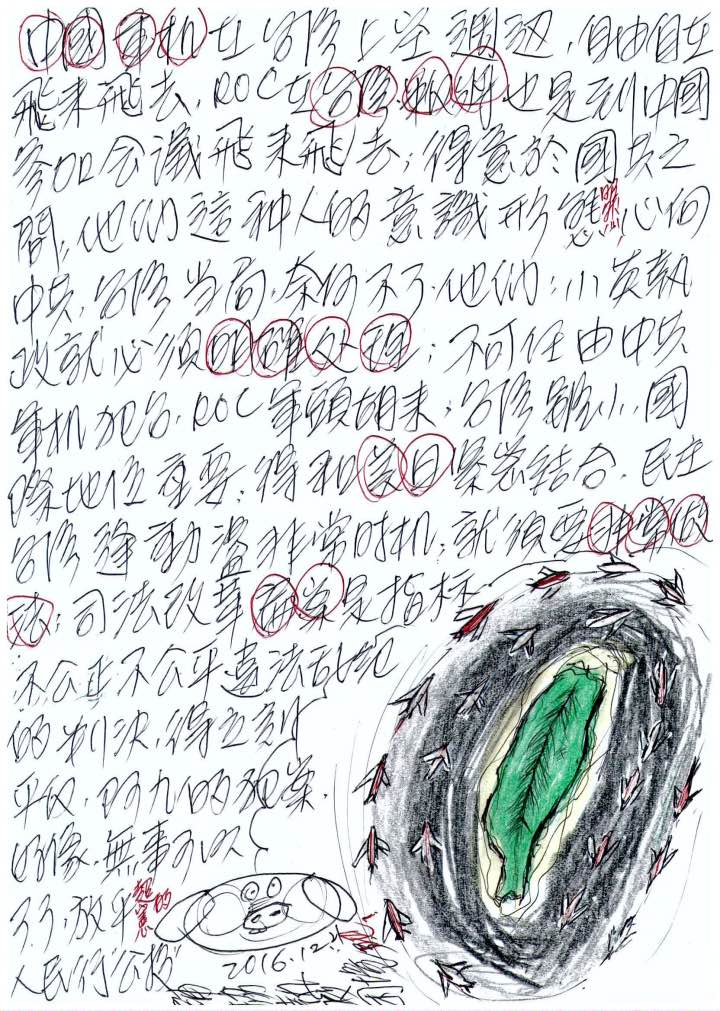 中國軍机在台灣上空週邊,自由自在
飛來飛去,ROC在台灣,敗將也是到中國
參加会議飛來飛去;得意於國共之
間;他們這种人的意識形態心向
中共,台灣当局,奈何不了他們;小英執
政就必須明確处理;不可任由中共
軍机犯台,ROC軍頭胡來;台灣雖小,國
際地位重要;得和美日緊密結合,民主
台灣 動盪非常时机;就須要非常做
法;司法改革扁案是指标
不公正不公平違法乱紀
的判決,得立刻
平反,阿九的犯案,
好像,無事可以
了了,放
人民行"公投"
2016.12.